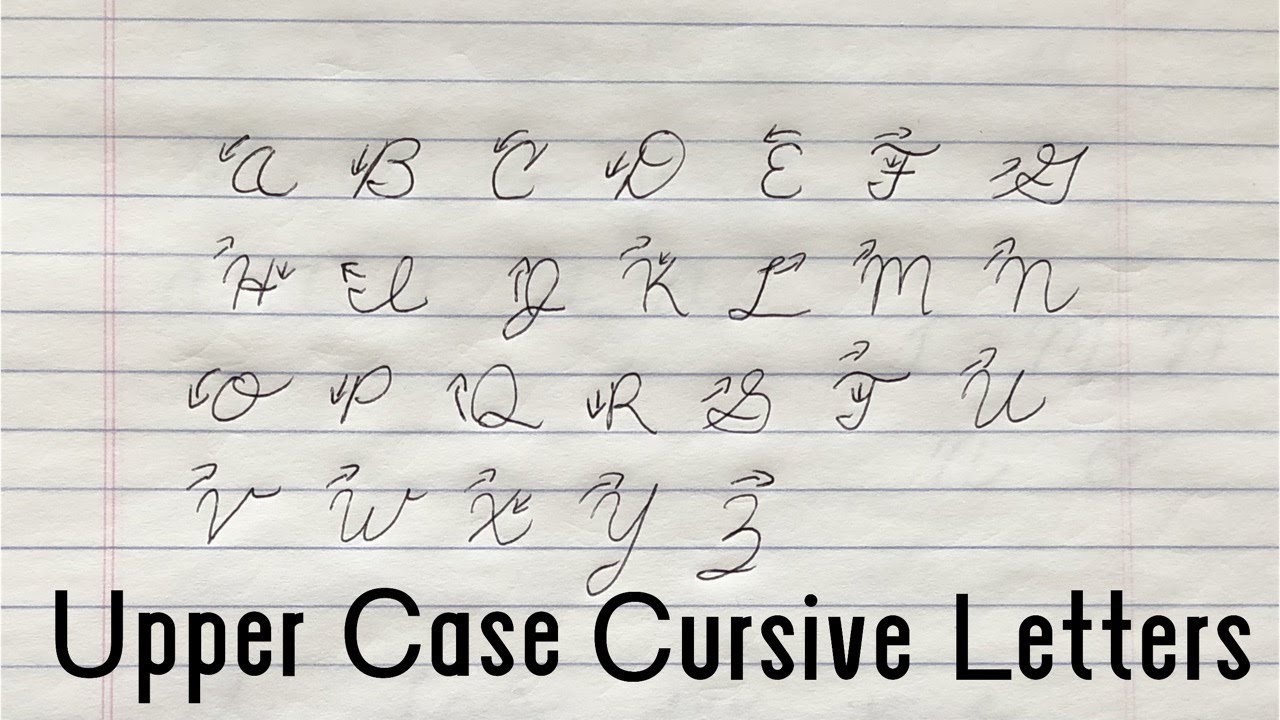 A B C D E F G
H I J K L M N
O P Q R S T U
V W X Y Z
Upper Case Cursive Letters